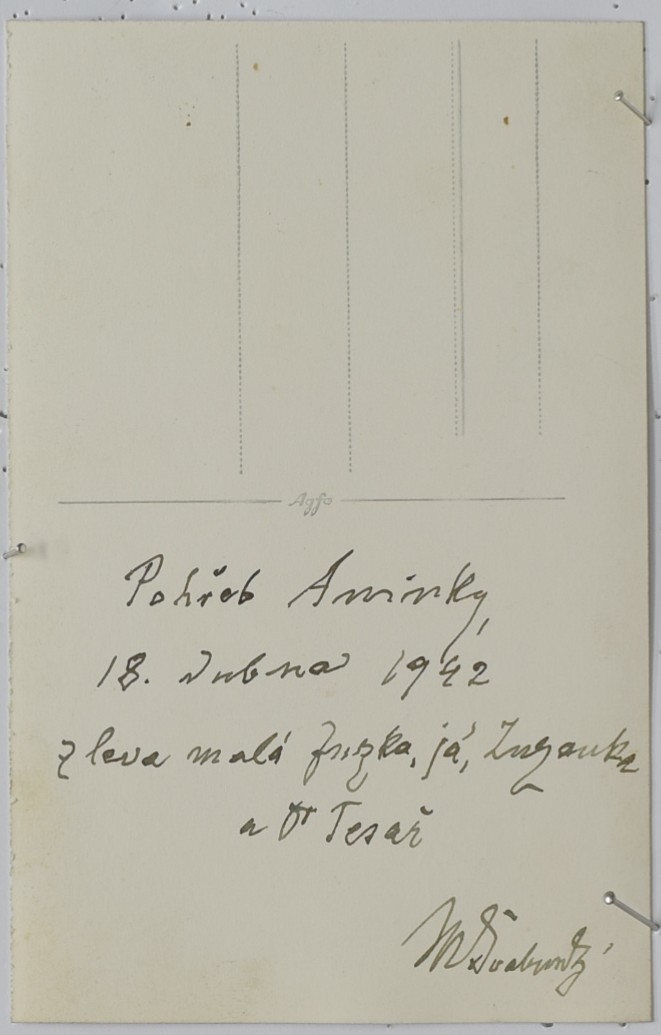 Agfa
Pohřeb Aninky
18. dubna 1942
z leva malá Zuzka, já, Zuzanka
a Dr Tesař
M. Švabinský